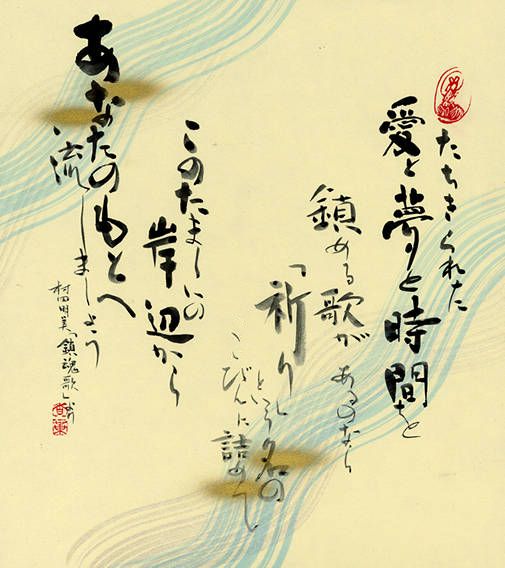 たちきられた
愛と夢と時間を
鎮める歌が
あるのなら
「祈り」
という名の
こびんに
詰めて
このたましいの
岸辺から
あなたの
もとへ
流しましょう
村田明美「鎮魂歌」より